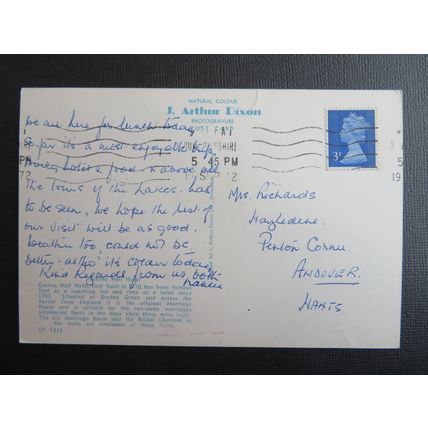 NATURAL COLOUR
J. Arthur Dixon
PHOTOGRAVURE
POST CARD
We are here for lunch today
So far it's a most enjoyable trip,
hotels, food & above all
The Tours of the Lakes has
to be seen, we hope the rest of
our visit will be as good.
Weather too could not be
better altho' it's colder today
Kind Regards from us both
5 45 PM
1972
3P
Mrs. Richards
Penton Corner.
ANDOVER.
HANTS
Gretna Hall Hotel
Gretna Hall Hotel, first built in 1710, has been famous
first as a coaching Inn and then as a hotel since
1791. Situated at Gretna Green just across the
Border from England it is the original Marriage
House and is notable for the run-away marriages
solemnised there in the days when these were legal.
The old Marriage Room and the Bridal Chamber in
the hotel are reminders of those Times.